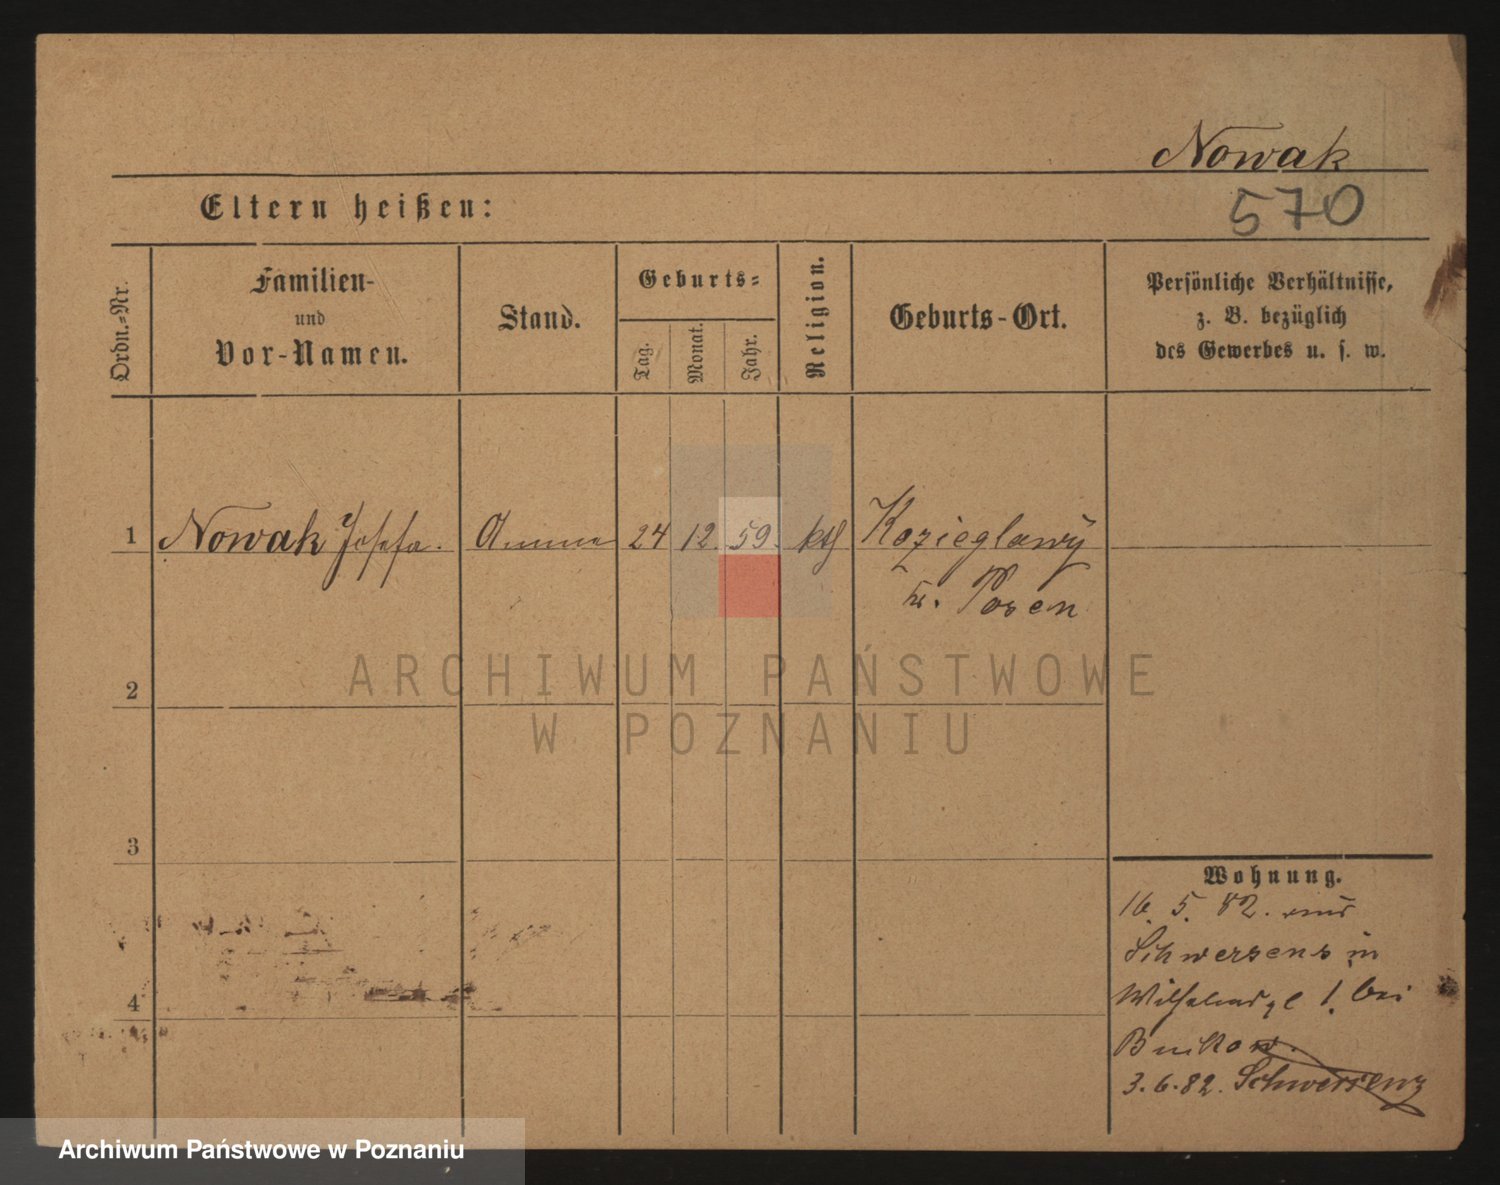 Nowak
570
Eltern heißen:
Ordn.-Nr.
Familien-
und
Vor-Namen.
Stand.
Geburts-
Tag.
Monat.
Jahr.
Religion.
Geburts-Ort.
Persönliche Verhältnisse,
z. B. bezüglich
des Gewerbes u. s. w.
1 Nowak Josefa. Amme 24 12. 59. kth Kozieglowy
Kr. Posen
2
3
4
Wohnung.
16. 5. 82. aus
Schwersens in
1. bei
3.6.82. Schwersenz
ARCHIWUM PAŃSTWOWE
W POZNANIU
Archiwum Państwowe w Poznaniu